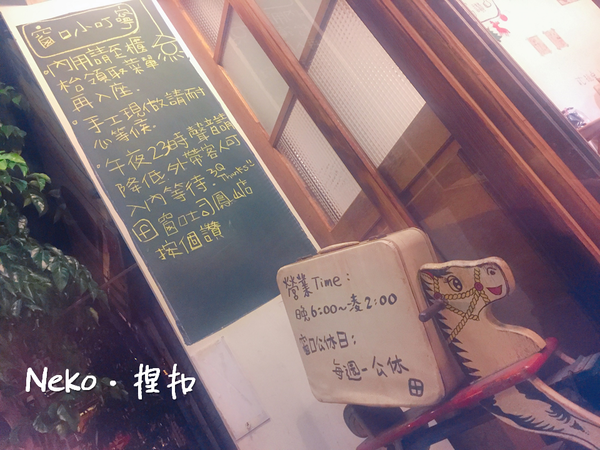 窗口小叮嚀
·內用請至櫃
枱領取菜單
再入座.
·手工現做請耐
心等侯.
·午夜23時聲音請
降低外帶客人可
入內等待. Thanks!!
窗口吐司鳳山店
按個讚
營業Time:
晚6:00~凌2:00
窗口公休日:
每週一公休
Neko·捏扣